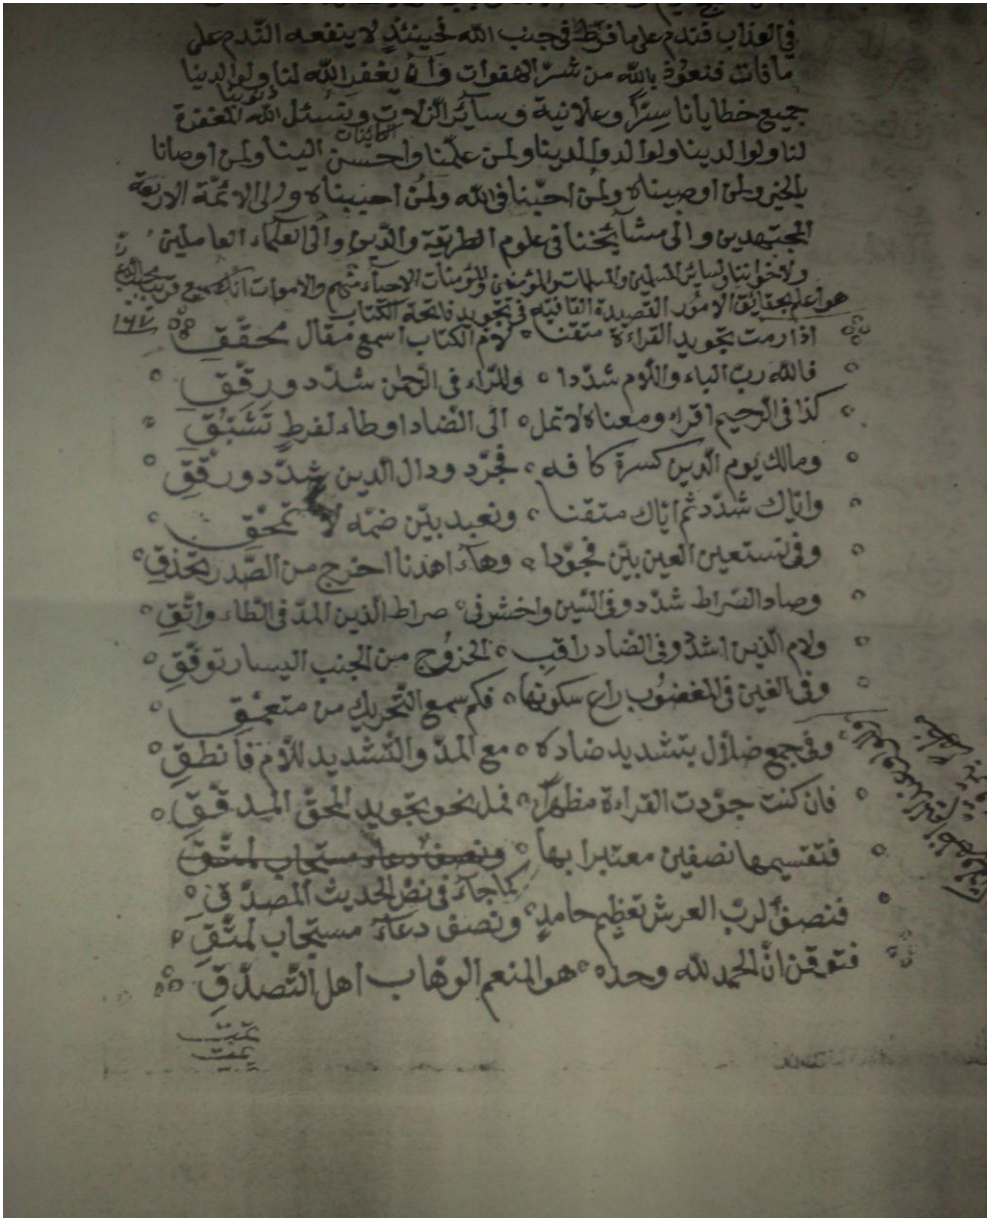 في العذاب فندم على ما فرط في جنب الله فحينئذٍ لا ينفعه الندم على
ما فات فنعوذ بالله من شر الهفوات وان يغفر الله لنا ولوالدينا
جميع خطايانا سِرًّا وعلانية وسائر الزلات ونسئل الله المغفرة
لنا ولوالدينا ولوالد والدينا ولمن علّمنا واحسن الينا ولمن اوصانا
بالخير ولمن اوصيناه ولمن احبّنا في الله ولمن احببناه والى الائمّة الاربعة
المجتهدين والى مشآئخنا في علوم الطريقة والدين والى العلمآء العاملين
ولاخواننا ولسائر المسلمين والمسلمات والمؤمنين والمؤمنات الاحيآء منهم والاموات انك سميع قريب
هو اعلم بحقائق الامور القصيدة القافيّه في تجويد فاتحة الكتاب
١٦٧
اذا رمت تجويد القراءة متقنا لام الكتاب اسمع مقال محقّقِ
فالله ربّ الباء واللام شدّدا وللرّاء في الرحمن شدّد ورقّقِ
كذا في الرحيم اقرا ومعناه لا تمل الى الضاد او طاء لفرط تَشَبُّقِ
ومالك يوم الدين كسرة كافه فجرّد ودال الدين شدّد ورقّقِ
واياك شدّد ثم اياك متقنا ونعبد بيّن ضمّه لا تمحّقِ
وفي نستعين العين بيّن مجوّدا وهآء اهدنا اخرج من الصّدر تحذقِ
وصاد الصراط شدّد وفي السين واخش في صراط الذين المدّ في الطاء واتّقِ
ولام الذين اشدد وفي الضاد راقبِ الخروج من الجنب اليسار توفّقِ
وفي الغين في المغضُوب راع سكونها فكم سمع التّحريك من متعمّقِ
وفي جمع ضلال بتشديد ضاده مع المدّ والتّشديد للام فانطقِ
فان كنت جوّدت القراءة مظهرًا فمل نحو تجويد المحقّ المدقّقِ
فتقسيمها نصفين معتبرا بها ونصف دعاء مستجاب لمتّقِ
كما جآء في نصّ الحديث المصدّقِ
فنصفٌ لربّ العرش تعظيم حامدٍ ونصف دعآء مستجاب لمتّقِ
فتوقن انّ الحمد لله وحده هو المنعم الوهّاب اهل التّصدّقِ
تمت
تمت